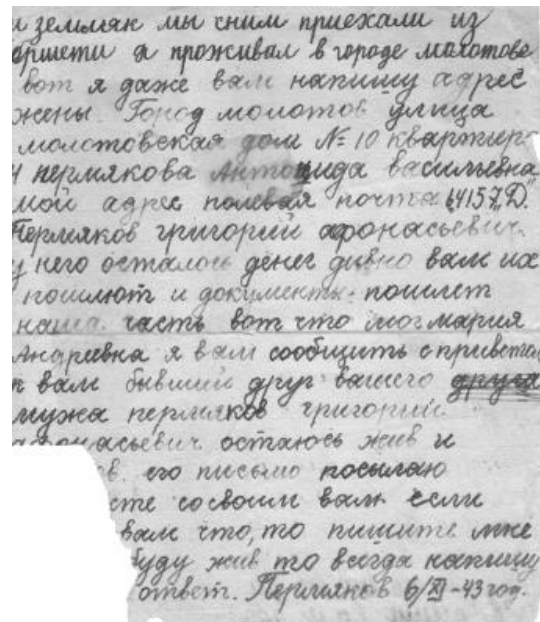 и земляк мы сним приехали из
а проживал в городе малотове
вот я даже вам напишу адрес
жены. Город молотов улица
молотовская дом № 10 квартира
4 пермякова Антонида васильевна
мой адрес полевая почта 64157 "Д".
Пермяков григорий афонасьевич.
у него осталось денег дивно вам их
пошлют и документы. пошлет
наша часть вот что мог мария
Андреевна я вам сообщить с приветом
к вам бывший друг вашего друга
мужа пермяков григорий
афонасьевич остаюсь жив и
ов. его письмо посылаю
сте со своим вам если
вам что, то пишите мне
буду жив то всегда напишу
ответ. Пермяков 6/XI-43 год.